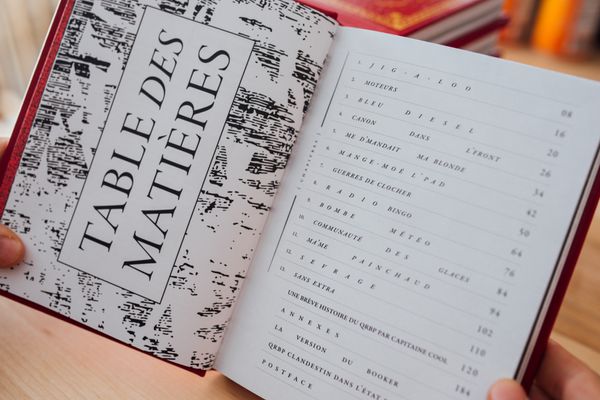 TABLE DES
MATIÈRES
1. JIG-A-LOO 08
2. MOTEURS 16
3. BLEU DIESEL 20
4. CANON DANS L'FRONT 26
5. ME D'MANDAIT MA BLONDE 34
6. MANGE-MOÉ L'PAD 42
7. GUERRES DE CLOCHER 50
8. RADIO BINGO 64
9. BOMBE MÉTÉO 76
10. COMMUNAUTÉ DES GLACES 84
11. MA'ME PAINCHAUD 94
12. SEVRAGE 102
13. SANS EXTRA 110
UNE BRÈVE HISTOIRE DU QRBP PAR CAPITAINE COOL 120
ANNEXES 184
LA VERSION DU BOOKER
QRBP CLANDESTIN DANS L'ÉTAT
POSTFACE